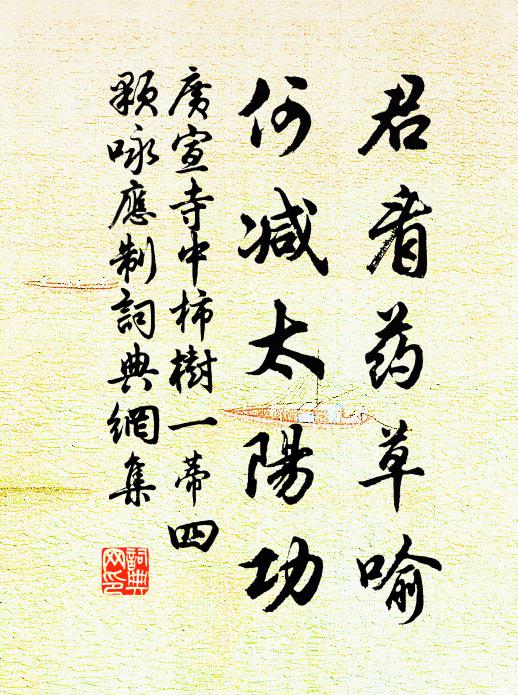 君看药草喻
何减太陽功
廣宣寺中柿樹一蒂四
顆咏應制詞典網集
詞典
网印